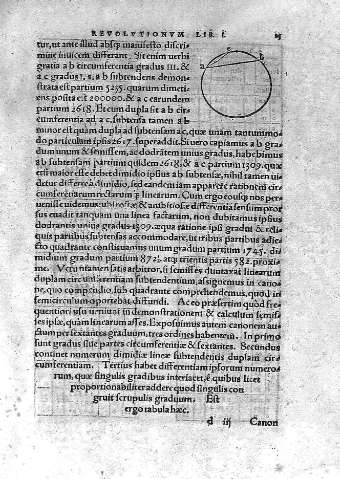 REVOLVTIONVM LIB. I. 15
tur, ut ante illud absq; manifesto discri
mine inuicem differant. Sit enim uerbi
gratia a b circumferentia gradus III. &
a c gradus I. s. a b subtendens demon-
strata est partium 5235. quarum dimeti-
ens posita est 200000. & a c earundem
partium 2618. Et cum dupla sit a b cir
cumferentia ad a c, subtensa tamen a b
minor est quàm dupla ad subtensam a c, quæ unam tantummo
do particulam ipsis 2617. superaddit. Si uero capiamus a b gra-
dum unum & semissem, ac dodrantem unius gradus, habebimus
a b subtensam partium quidem 2618. & a c partium 1309. quæ
etsi maior esse debet dimidio ipsius a b subtensæ, nihil tamen ui
detur differre à dimidio, sed eandem iam apparere rationem cir
cumferentiarum rectarumq; linearum. Cum ergo eousq; nos per
uenisse uideamus
sus euadit tanquam una linea factarum, non dubitamus ipsius
dodrantis unius gradus 1309. æqua ratione ipsi gradui & reli-
quis partibus subtensas accommodare, ut tribus partibus adie-
cto quadrante constituamus unum gradum partium 1745. di-
midium gradum partium 872½. atq; trientis partis 582.
me. Veruntamen satis arbitror, si semisses duntaxat linearum
duplam circumferentiam subtendentium, assignemus in canone
quo compendio, sub quadrante comprehendemus, quod in
semicirculum oportebat diffundi. Ac eo præsertim quod fre-
quentiori usu ueniunt in demonstrationem & calculum semis-
ses ipsæ, quàm linearum asses. Exposuimus autem canonem au-
ctum per sextantes graduum, tres ordines habentem. In primo
sunt gradus siue partes circumferentiæ & sextantes. Secundus
continet numerum dimidiæ lineæ subtendentis duplam cir-
cumferentiam. Tertius habet differentiam ipsorum numero-
rum, quæ singulis gradibus interiacet, è quibus licet
proportionabiliter addere quod singulis con
gruit scrupulis graduum. Est
ergo tabula hæc.
d iij Canon
a
c
b